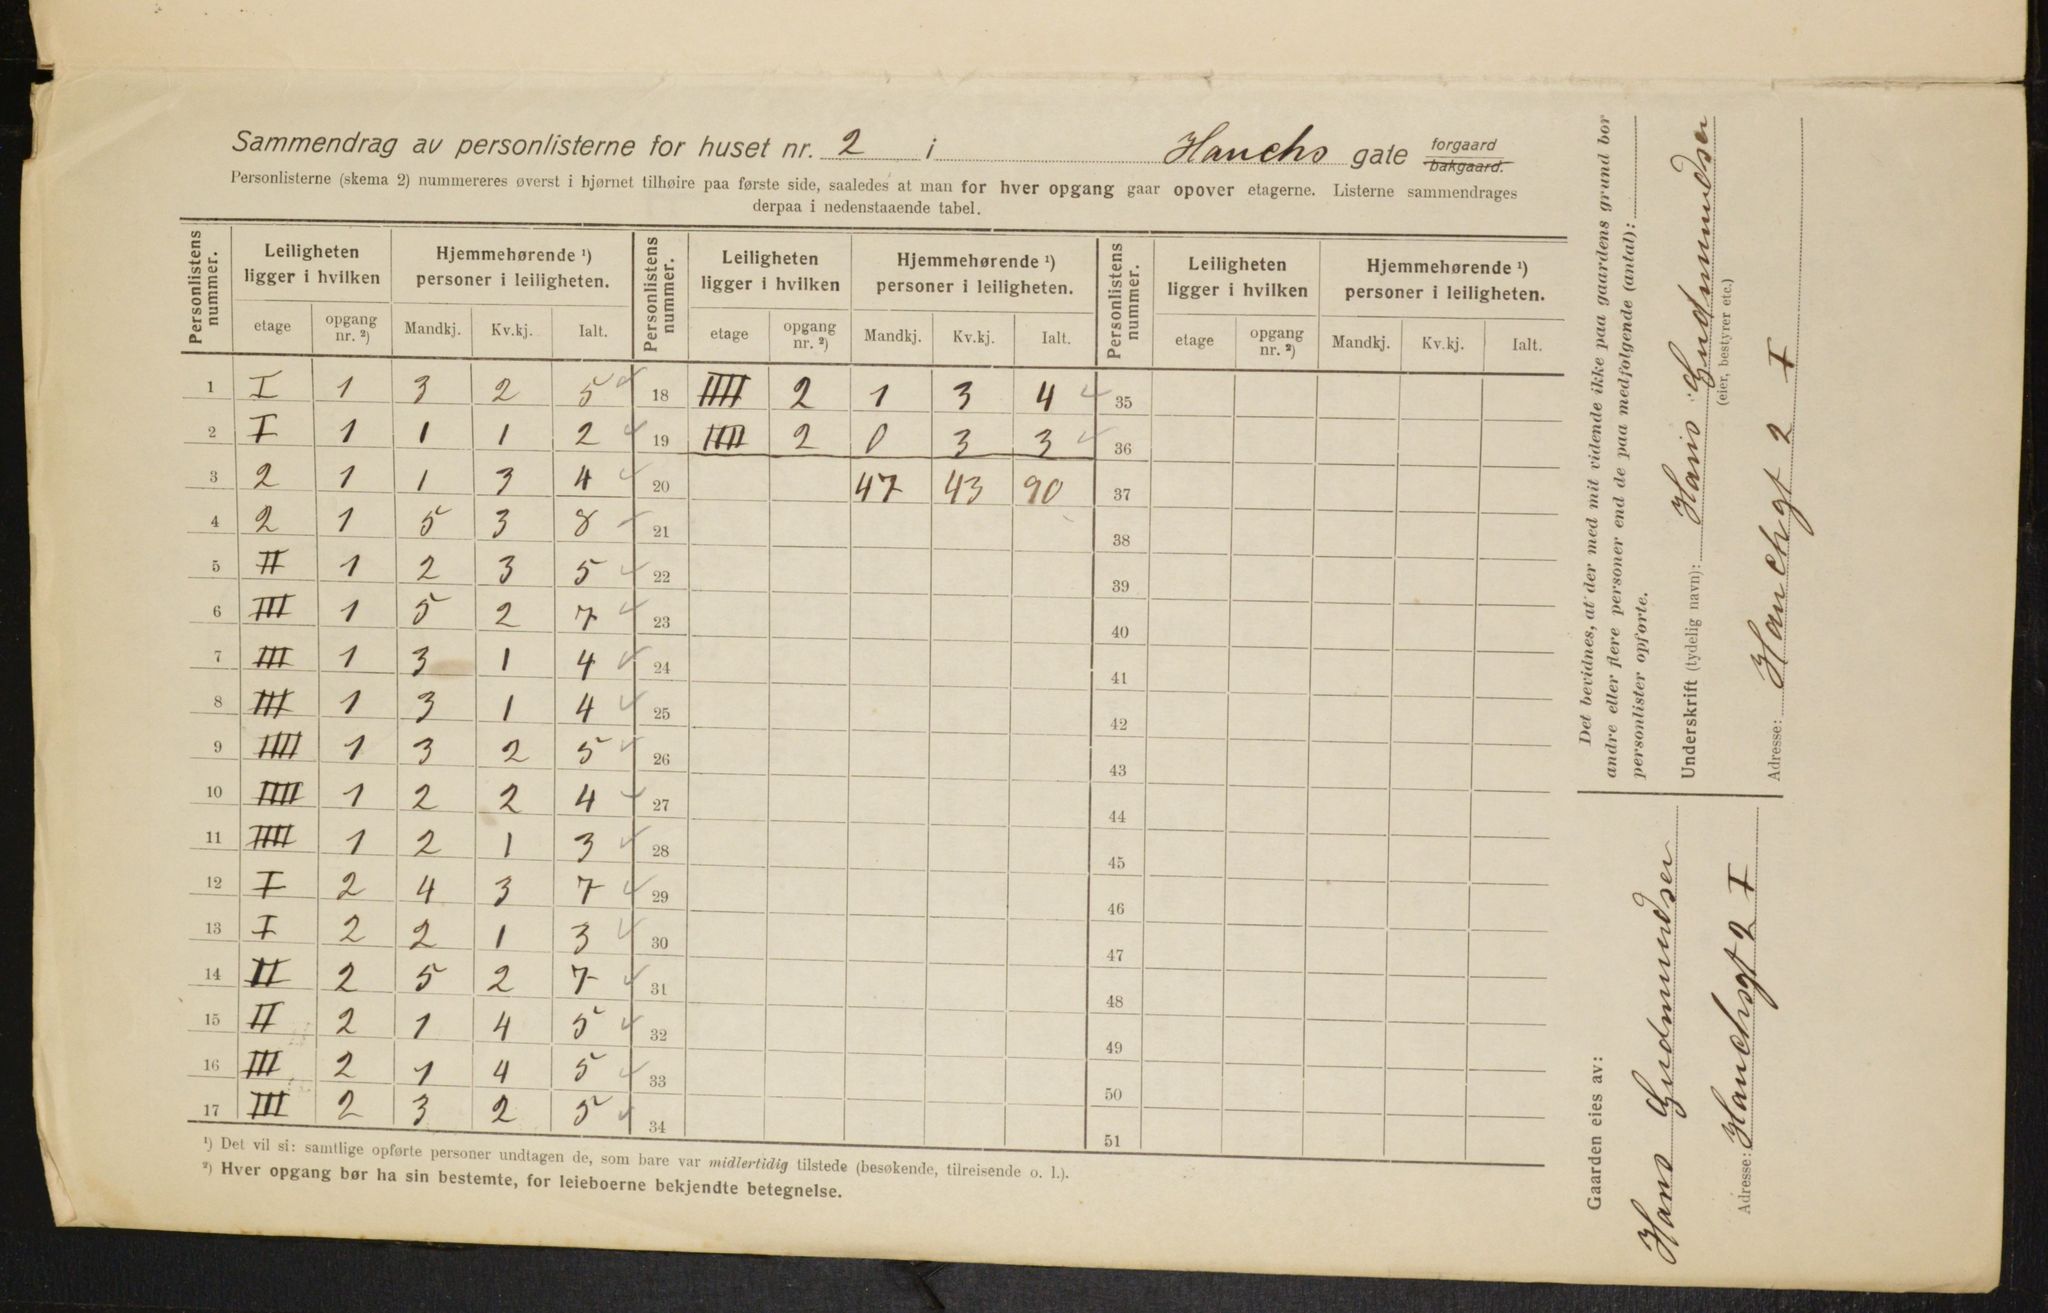 Sammendrag av personlisterne for huset nr. 2 i Hauchs gate forgaard bakgaard.
Personlisterne (skema 2) nummereres øverst i hjørnet tilhøire paa første side, saaledes at man for hver opgang gaar opover etagerne. Listerne sammendrages
derpaa i nedenstaaende tabel.
Personlistens nummer. Leiligheten ligger i hvilken Hjemmehørende ¹) personer i leiligheten. Personlistens nummer. Leiligheten ligger i hvilken Hjemmehørende ¹) personer i leiligheten. Personlistens nummer. Leiligheten ligger i hvilken Hjemmehørende ¹) personer i leiligheten.
etage opgang nr. ²) Mandkj. Kv.kj. Ialt. etage opgang nr. ²) Mandkj. Kv.kj. Ialt. etage opgang nr. ²) Mandkj. Kv.kj. Ialt.
1 I 1 3 2 5 18 IIII 2 1 3 4 35
2 I 1 1 1 2 19 IIII 2 0 3 3 36
3 2 1 1 3 4 20 47 43 90 37
4 2 1 5 3 8 21 38
5 II 1 2 3 5 22 39
6 III 1 5 2 7 23 40
7 III 1 3 1 4 24 41
8 III 1 3 1 4 25 42
9 IIII 1 3 2 5 26 43
10 IIII 1 2 2 4 27 44
11 IIII 1 2 1 3 28 45
12 I 2 4 3 7 29 46
13 I 2 2 1 3 30 47
14 II 2 5 2 7 31 48
15 II 2 1 4 5 32 49
16 III 2 1 4 5 33 50
17 III 2 3 2 5 34 51
¹) Det vil si: samtlige opførte personer undtagen de, som bare var midlertidig tilstede (besøkende, tilreisende o. l.).
²) Hver opgang bør ha sin bestemte, for leieboerne bekjendte betegnelse.
Det bevidnes, at der med mit vidende ikke paa gaardens grund bor
andre eller flere personer end de paa medfølgende (antal):
personlister opførte.
Underskrift (tydelig navn): Hans Gudmundsen
(eier, bestyrer etc.)
Adresse: Hauchsgt 2 I
Gaarden eies av:
Hans Gudmundsen
Adresse: Hauchsgt 2 I